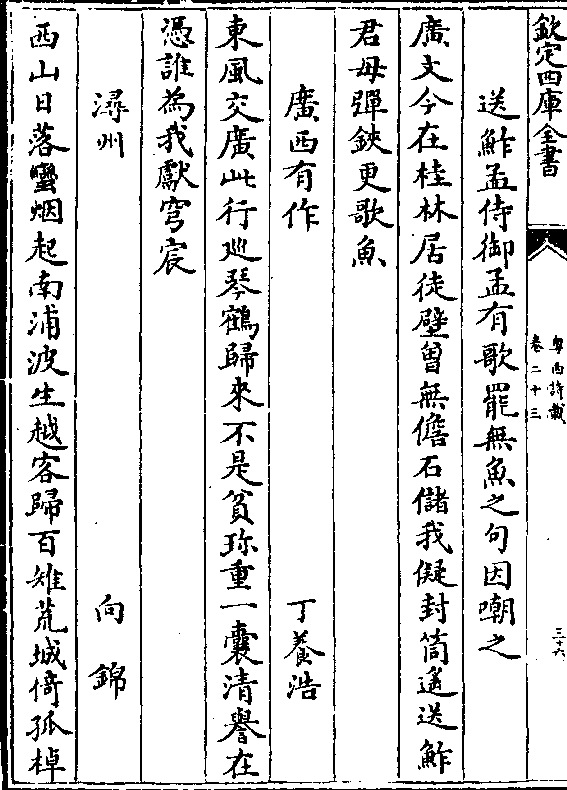 欽定四庫全書
粤西詩載
卷二十三
三十六
送鮓孟侍御孟有歌罷無魚之句因嘲之
廣文今在桂林居徒壁曾無儋石儲我儗封筒遙送鮓
君毋彈鋏更歌魚
廣西有作 丁養浩
東風交廣此行廵琴鶴歸來不是貧珎重一囊清譽在
憑誰為我獻穹宸
潯州 向錦
西山日落蠻烟起南浦波生越客歸百雉荒城倚孤棹